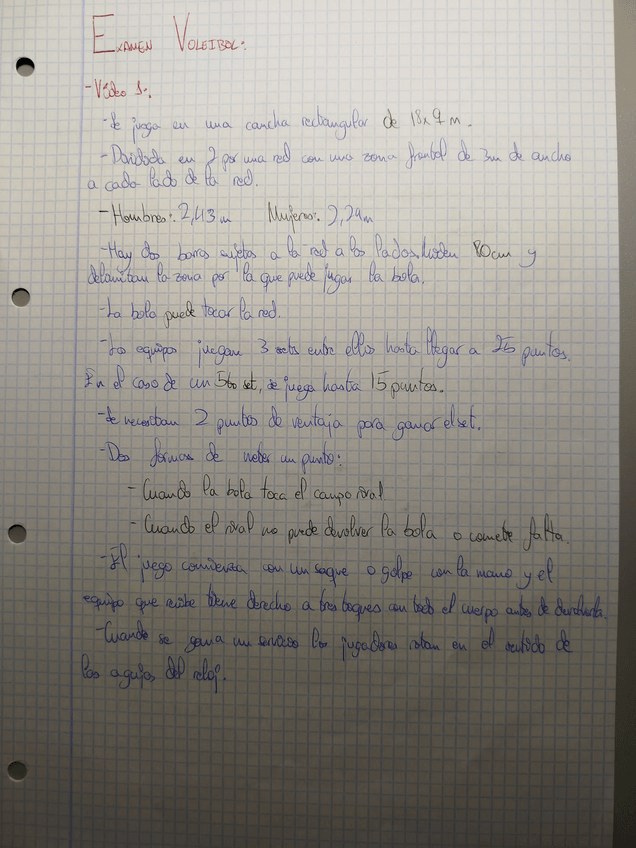 EXAMEN VOLEIBOL:
-Vídeo 1:.
-Se juega en una cancha rectangular de 18x9 m.
-Dividida en 2 por una red con una zona frontal de 3m de ancho
a cada lado de la red.
-Hombres: 2,43m Mujeres: 2,24m
-Hay dos barras sujetas a la red a los lados. Miden 80cm y
delimitan la zona por la que puede jugar la bola.
-La bola puede tocar la red.
-Los equipos juegan 3 sets entre ellos hasta llegar a 25 puntos.
En el caso de un 5to set, se juega hasta 15 puntos.
-Se necesitan 2 puntos de ventaja para ganar el set.
-Dos formas de meter un punto:
-Cuando la bola toca el campo rival
-Cuando el rival no puede devolver la bola o comete falta.
-El juego comienza con un saque o golpe con la mano y el
equipo que recibe tiene derecho a tres toques con todo el cuerpo antes de devolverla.
-Cuando se gana un servicio los jugadores rotan en el sentido de
las agujas del reloj.